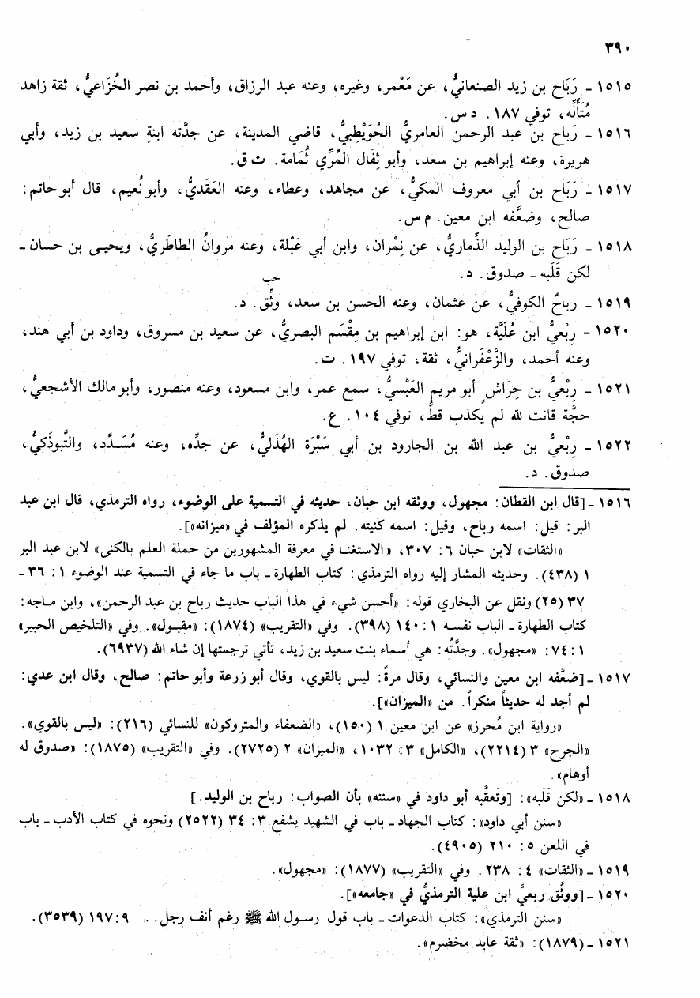 ٣٩٠
١٥١٥ - رَبَاح بن زيد الصنعانيُّ، عن مَعْمر، وغيره، وعنه عبد الرزاق، وأحمد بن نصر الخُزَاعيُّ، ثقة زاهد
مُتَألِّه، توفي ١٨٧. د س.
١٥١٦ - رَبَاح بن عبد الرحمن العامريُّ الحُوَيْطِبيُّ، قاضي المدينة، عن جدَّته ابنةِ سعيد بن زيد، وأبي
هريرة، وعنه إبراهيم بن سعد، وأبو ثِفَال المُرِّي ثُمَامة. ت ق.
١٥١٧ - رَبَاح بن أبي معروف المكيُّ، عن مجاهد، وعطاء، وعنه العَقَديُّ، وأبو نُعيم، قال أبو حاتم:
صالح، وضعَّفه ابن معين. م س.
١٥١٨ - رَبَاح بن الوليد الذِّمَاريُّ، عن نِمْران، وابن أبي عَبْلة، وعنه مروانُ الطاطَريُّ، ويحيى بن حسان -
لكن قَلَبه - صدوق. د.
حب
١٥١٩ - رباحٌ الكوفيُّ، عن عثمان، وعنه الحسن بن سعد، وثِّق. د.
١٥٢٠ - رِبْعيُّ ابن عُلَيَّة، هو: ابن إبراهيم بن مِقْسَم البصريُّ، عن سعيد بن مسروق، وداود بن أبي هند،
وعنه أحمد، والزَّعْفرانيُّ، ثقة، توفي ١٩٧. ت.
١٥٢١ - رِبْعيُّ بن حِرَاشٍ أبو مريم العَبْسيُّ، سمع عمر، وابن مسعود، وعنه منصور، وأبو مالك الأشجعيُّ،
حجَّة قانت لله لم يكذب قطُّ، توفي ١٠٤. ع.
١٥٢٢ - رِبْعيُّ بن عبد الله بن الجارود بن أبي سَبْرَة الهُذَليُّ، عن جدِّه، وعنه مُسَدَّد، والتَّبوذَكيُّ،
صدوق. د.
١٥١٦ - [قال ابن القطان: مجهول، ووثقه ابن حبان، حديثه في التسمية على الوضوء، رواه الترمذي، قال ابن عبد
البر: قيل: اسمه رباح، وقيل: اسمه كنيته. لم يذكره المؤلف في «ميزانه»].
«الثقات» لابن حبان ٦: ٣٠٧، «الاستغنا في معرفة المشهورين من حملة العلم بالكنى» لابن عبد البر
١ (٤٣٨). وحديثه المشار إليه رواه الترمذي: كتاب الطهارة - باب ما جاء في التسمية عند الوضوء ١: ٣٦ -
٣٧ (٢٥) ونقل عن البخاري قوله: «أحسن شيء في هذا الباب حديث رباح بن عبد الرحمن»، وابن ماجه:
كتاب الطهارة - الباب نفسه ١: ١٤٠ (٣٩٨). وفي «التقريب» (١٨٧٤): «مقبول». وفي «التلخيص الحبير»
١: ٧٤: «مجهول». وجدَّتُه: هي أسماء بنت سعيد بن زيد، تأتي ترجمتها إن شاء الله (٦٩٣٧).
١٥١٧ - [ضعَّفه ابن معين والنسائي، وقال مرةً: ليس بالقوي، وقال أبو زرعة وأبو حاتم: صالح، وقال ابن عدي:
لم أجد له حديثاً منكراً. من «الميزان»].
«رواية ابن مُحرز» عن ابن معين ١ (١٥٠)، «الضعفاء والمتروكون» للنسائي (٢١٦): «ليس بالقوي».
«الجرح» ٣ (٢٢١٤)، «الكامل» ٣: ١٠٣٢، «الميزان» ٢ (٢٧٢٥). وفي «التقريب» (١٨٧٥): «صدوق له
أوهام».
١٥١٨ - «لكن قَلَبه»: [وتعقَّبه أبو داود في «سننه» بأن الصواب: رباح بن الوليد.]
«سنن أبي داود»: كتاب الجهاد - باب في الشهيد يشفع ٣: ٣٤ (٢٥٢٢) ونحوه في كتاب الأدب - باب
في اللعن ٥: ٢١٠ (٤٩٠٥).
١٥١٩ - «الثقات» ٤: ٢٣٨. وفي «التقريب» (١٨٧٧): «مجهول».
١٥٢٠ - [ووثَّق ربعيَّ ابن علية الترمذيُّ في «جامعه»].
«سنن الترمذي»: كتاب الدعوات - باب قول رسول الله ﷺ رغم أنف رجل.. ٩: ١٩٧ (٣٥٣٩).
١٥٢١ - (١٨٧٩): «ثقة عابد مخضرم».